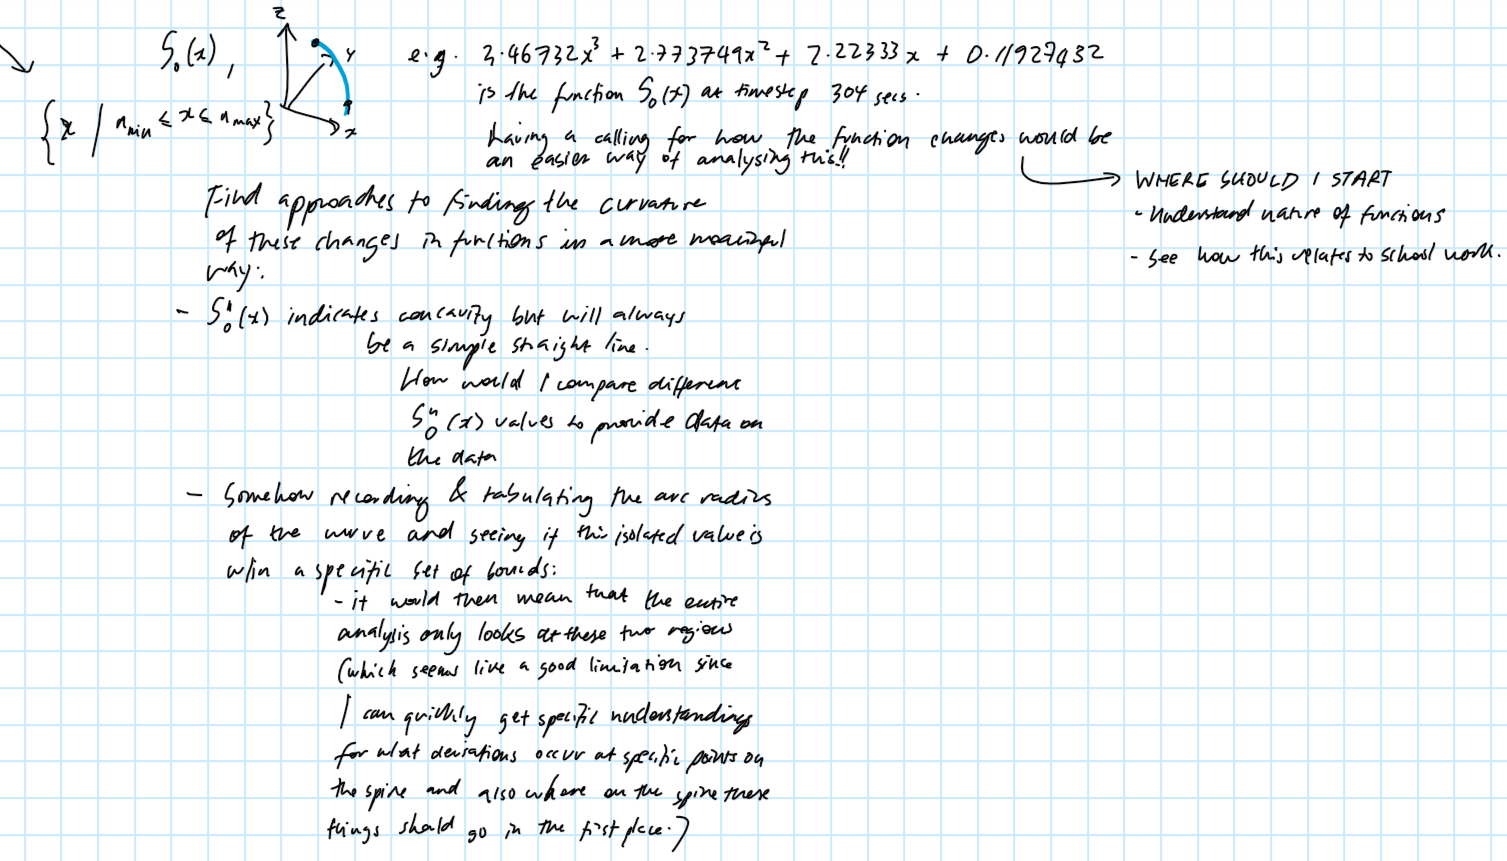 S₀(x),
z
y
x
{x | x min ≤ x ≤ x max}
e.g. 3.46732x³ + 2.773749x² + 2.22333x + 0.11927432
is the function S₀(x) at timestep 304 secs.
Having a calling for how the function changes would be
an easier way of analysing this!!
WHERE SHOULD I START
- Understand nature of functions
- See how this relates to school work.
Find approaches to finding the curvature
of these changes in functions in a more meaningful
way:
- S₀"(x) indicates concavity but will always
be a simple straight line.
How would I compare different
S₀"(x) values to provide data on
the data
- Somehow recording & tabulating the arc radius
of the curve and seeing if this isolated value is
w/in a specific set of bounds:
- it would then mean that the entire
analysis only looks at these two regions
(which seems like a good limitation since
I can quickly get specific understandings
for what deviations occur at specific points on
the spine and also where on the spine these
things should go in the first place.)